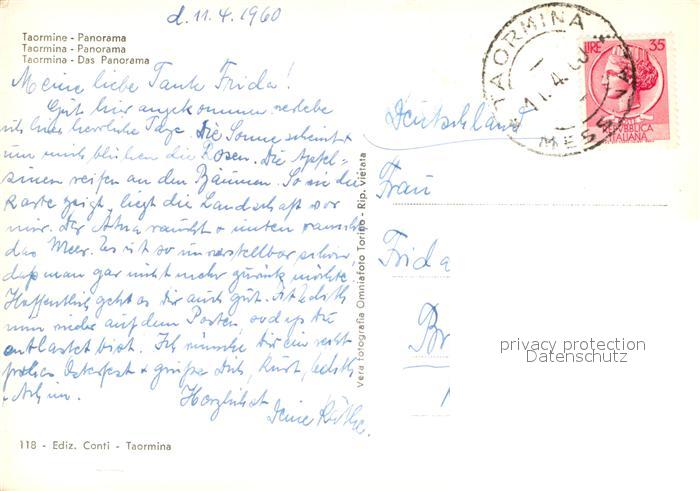 d. 11.4.1960
Taormine - Panorama
Taormina - Panorama
Taormina - Das Panorama
Meine liebe Tante Frida!
Gut hier angekommen verlebe
ich hier herrliche Tage. Die Sonne scheint +
um mich blühen die Rosen. Die Apfel=
sinen reifen an den Bäumen. So wie die
Karte zeigt, liegt die Landschaft vor
mir. Der Ätna raucht + unten rauscht
das Meer. Es ist so unvorstellbar schön,
daß man gar nicht mehr zurück möchte.
Hoffentlich geht es Dir auch gut.
nun wieder auf dem Posten, sodaß Du
entlastet bist. Ich wünsche Dir ein recht
frohes Osterfest + grüße Dich, Kurt,
Herzlichst
Deine Käthe.
118 - Ediz. Conti - Taormina
Vera fotografia Omniafoto Torino - Rip. vietata
TAORMINA
11.4.60
MESSINA
LIRE 35
REPUBBLICA
ITALIANA
Deutschland
Frau
Frida
Br
privacy protection
Datenschutz